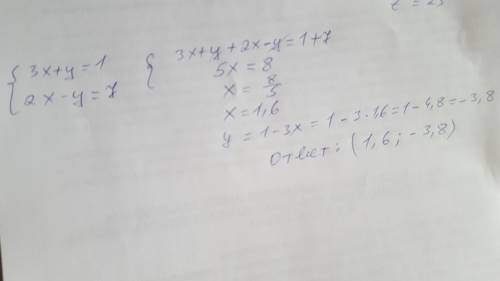 t = 23
{ 3x+y=1
2x-y=7
{ 3x+y+2x-y=1+7
5x=8
x = 8/5
x=1,6
y = 1-3x = 1-3·1,6=1-4,8=-3,8
ответ: (1,6; -3,8)